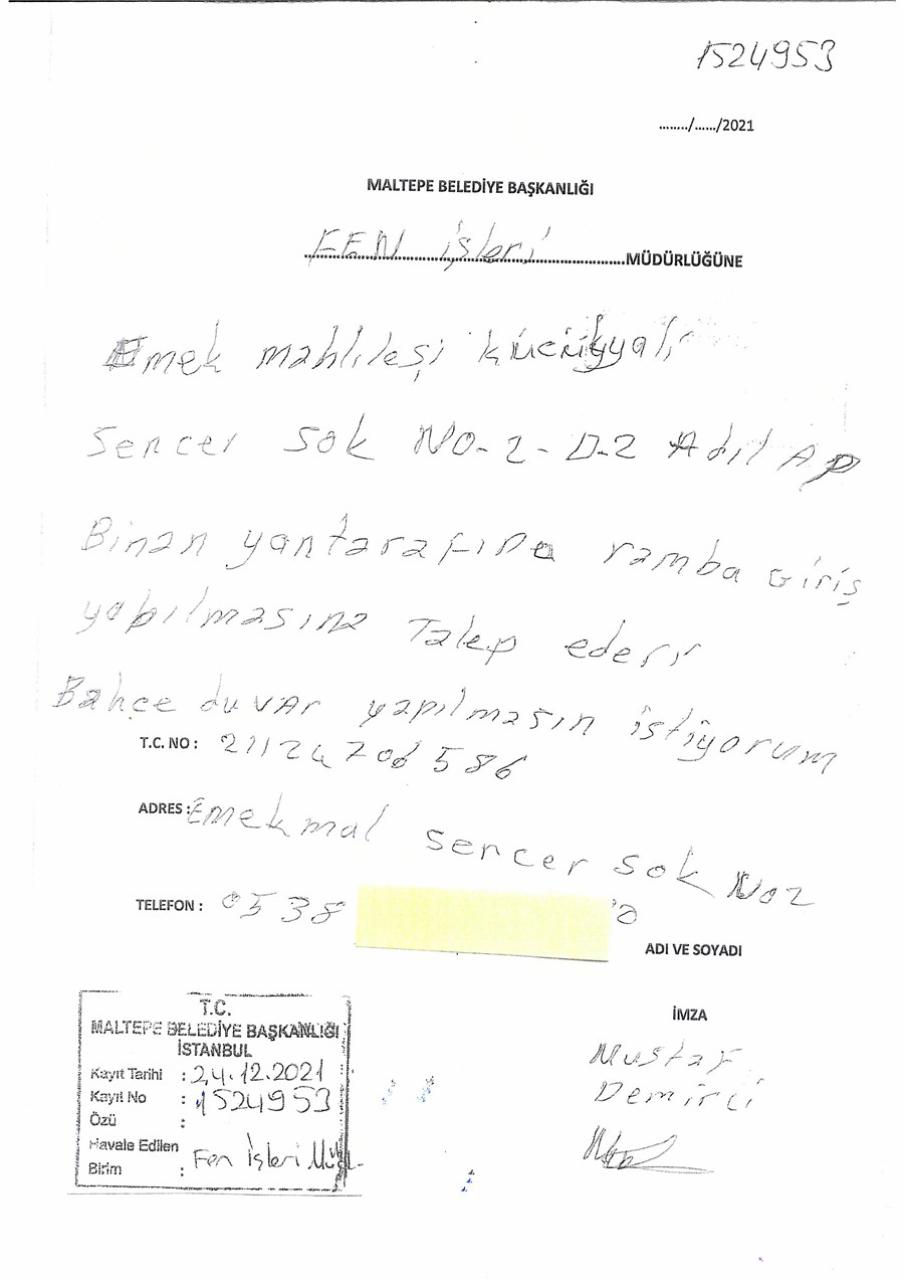 1524953
......../....../2021
MALTEPE BELEDİYE BAŞKANLIĞI
FEN işleri MÜDÜRLÜĞÜNE
Emek mahlileşi küçükyalı
Sencer Sok NO-2-D-2 Adil AP
Binan yantarafına ramba Giriş
yabılmasına Talep ederı
Bahce duvar yapılmasın istiyorum
T.C. NO : 21124706586
ADRES : Emekmal sencer sok No2
TELEFON : 0538
ADI VE SOYADI
İMZA
Mustaf
Demirci
T.C.
MALTEPE BELEDİYE BAŞKANLIĞI
İSTANBUL
Kayıt Tarihi : 24.12.2021
Kayıt No : 1524953
Özü :
Havale Edilen
Birim : Fen İşleri Müd.